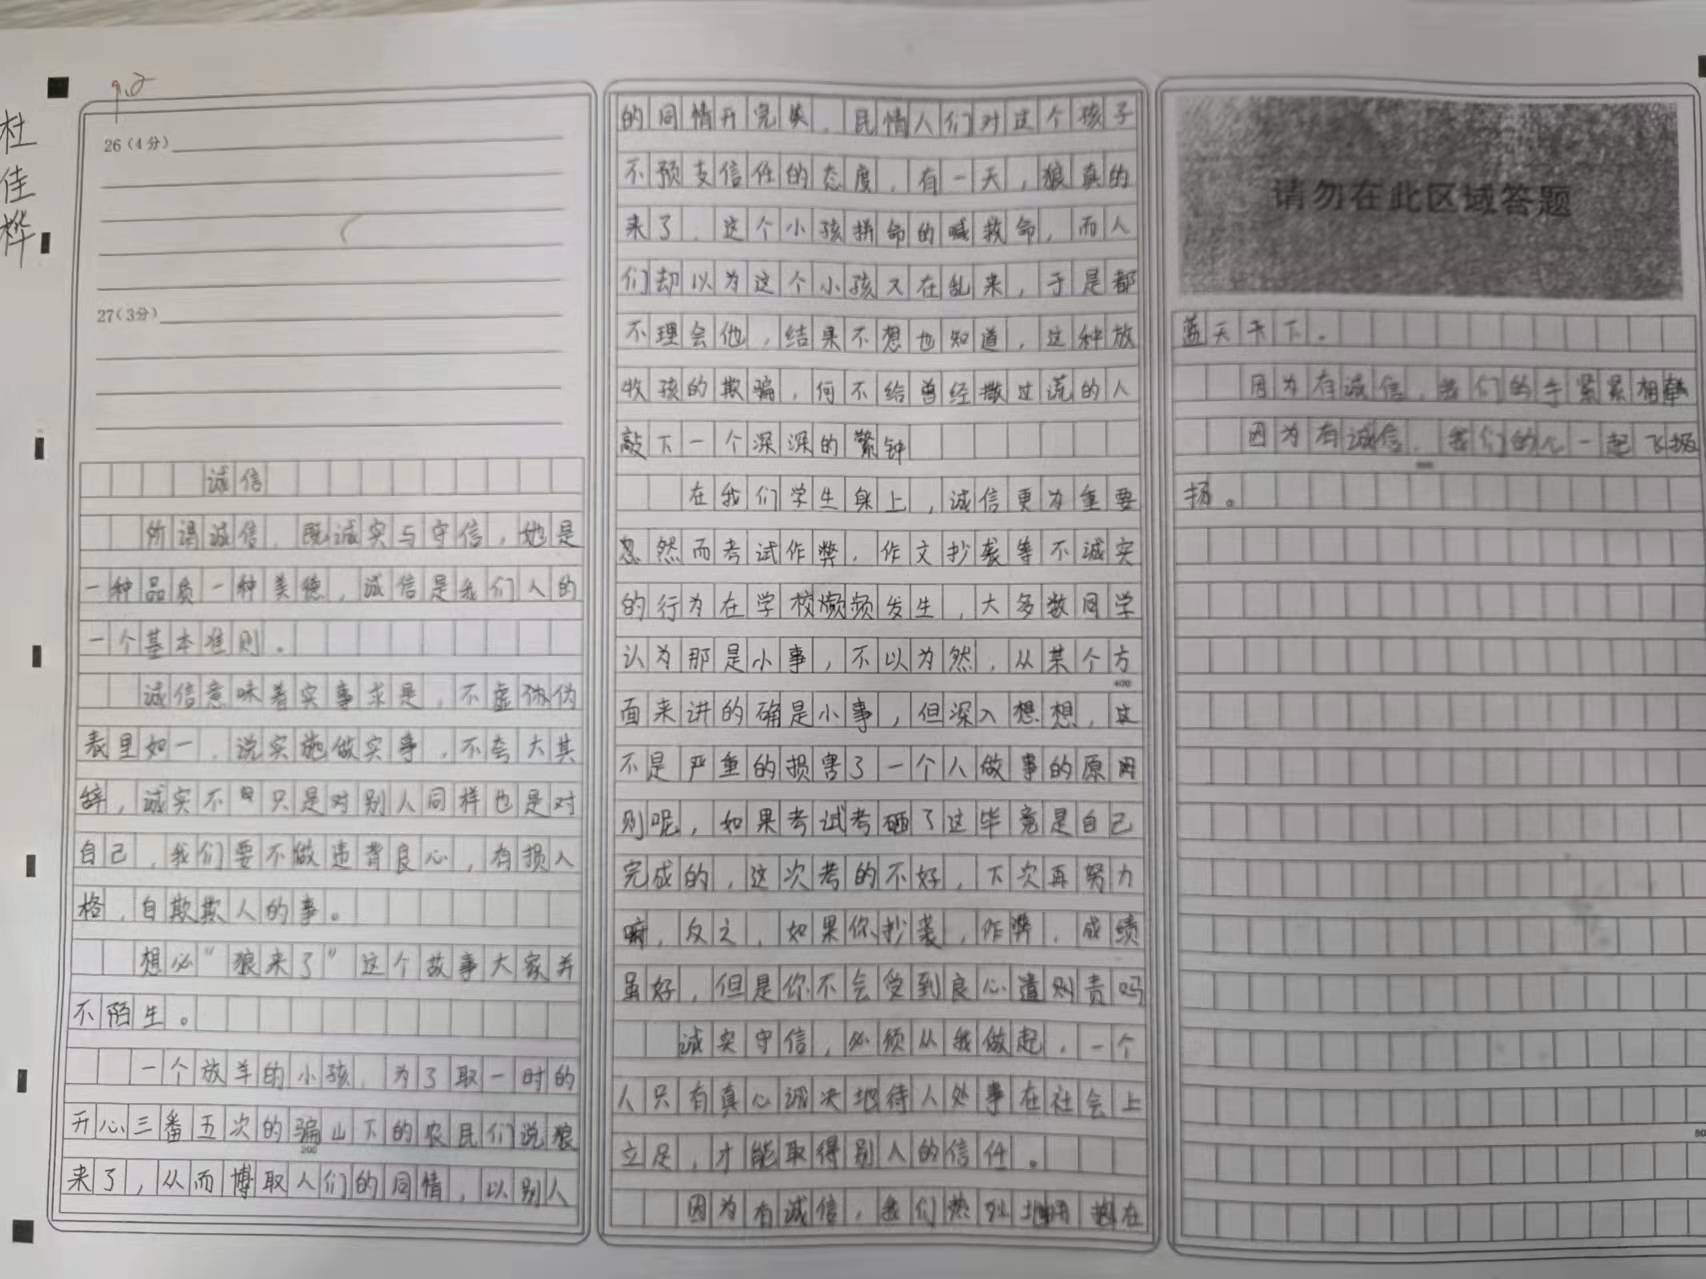 9.2
杜佳桦
26(4分)
27(3分)
诚信
所谓诚信，既诚实与守信，她是
一种品质一种美德，诚信是我们人的
一个基本准则。
诚信意味着实事求是，不虚伪
表里如一，说实施做实事，不夸大其
辞，诚实不只是对别人同样也是对
自己，我们要不做违背良心，有损人
格，自欺欺人的事。
想必“狼来了”这个故事大家并
不陌生。
一个放羊的小孩，为了取一时的
开心三番五次的骗山下的农民们说狼
200
来了，从而博取人们的同情，以别人
的同情开完笑，民情人们对这个孩子
不预支信任的态度，有一天，狼真的
来了，这个小孩拼命的喊救命，而人
们却以为这个小孩又在乱来，于是都
不理会他，结果不想也知道，这种放
牧孩的欺骗，何不给曾经撒过谎的人
敲下一个深深的警钟
在我们学生身上，诚信更为重要
忽然而考试作弊，作文抄袭等不诚实
的行为在学校频发生，大多数同学
认为那是小事，不以为然，从某个方
400
面来讲的确是小事，但深入想想，这
不是严重的损害了一个人做事的原
则呢，如果考试考砸了这毕竟是自己
完成的，这次考的不好，下次再努力
嘛，反之，如果你抄袭，作弊，成绩
虽好，但是你不会受到良心遣则责吗
诚实守信，必须从我做起，一个
人只有真心诚决地待人处事在社会上
立足，才能取得别人的信任。
因为有诚信，我们热烈地相拥在
请勿在此区域答题
蓝天天下。
因为有诚信，我们的手紧紧相牵
因为有诚信，我们的心一起飞扬
600
扬。